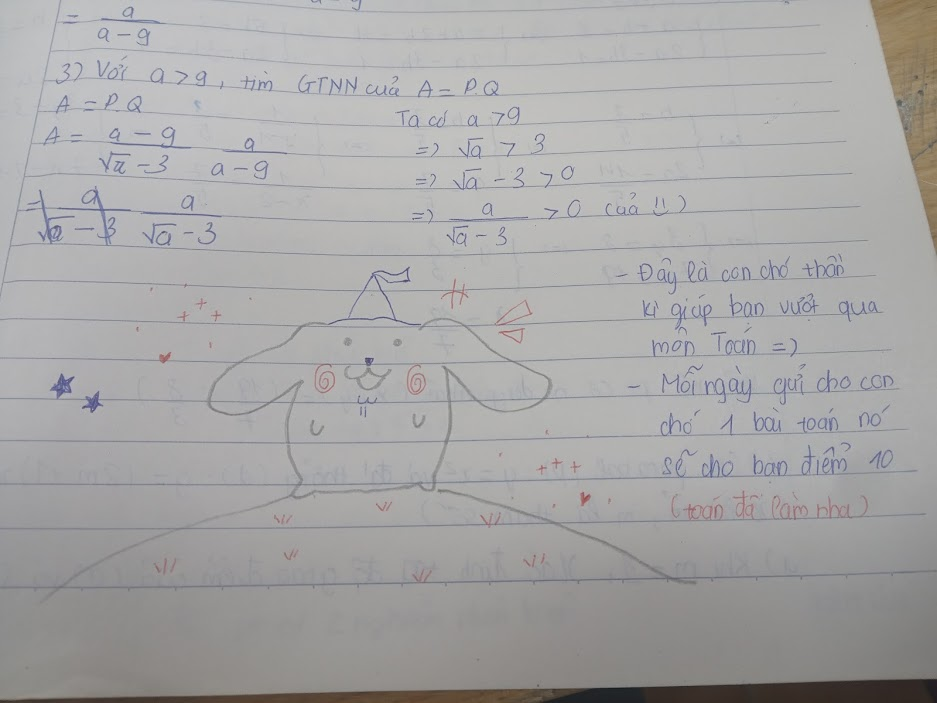 = a / (a - 9)
3) Với a > 9, tìm GTNN của A = P.Q
A = P.Q
A = (a - 9) / (√a - 3) a / (a - 9)
= a / (√a - 3)
Ta có a > 9
=> √a > 3
=> √a - 3 > 0
=> a / (√a - 3) > 0 (ủa !!)
- Đây là con chó thần
kì giúp bạn vượt qua
môn Toán =)
- Mỗi ngày gửi cho con
chó 1 bài toán nó
sẽ cho bạn điểm 10
(toán đã làm nha)